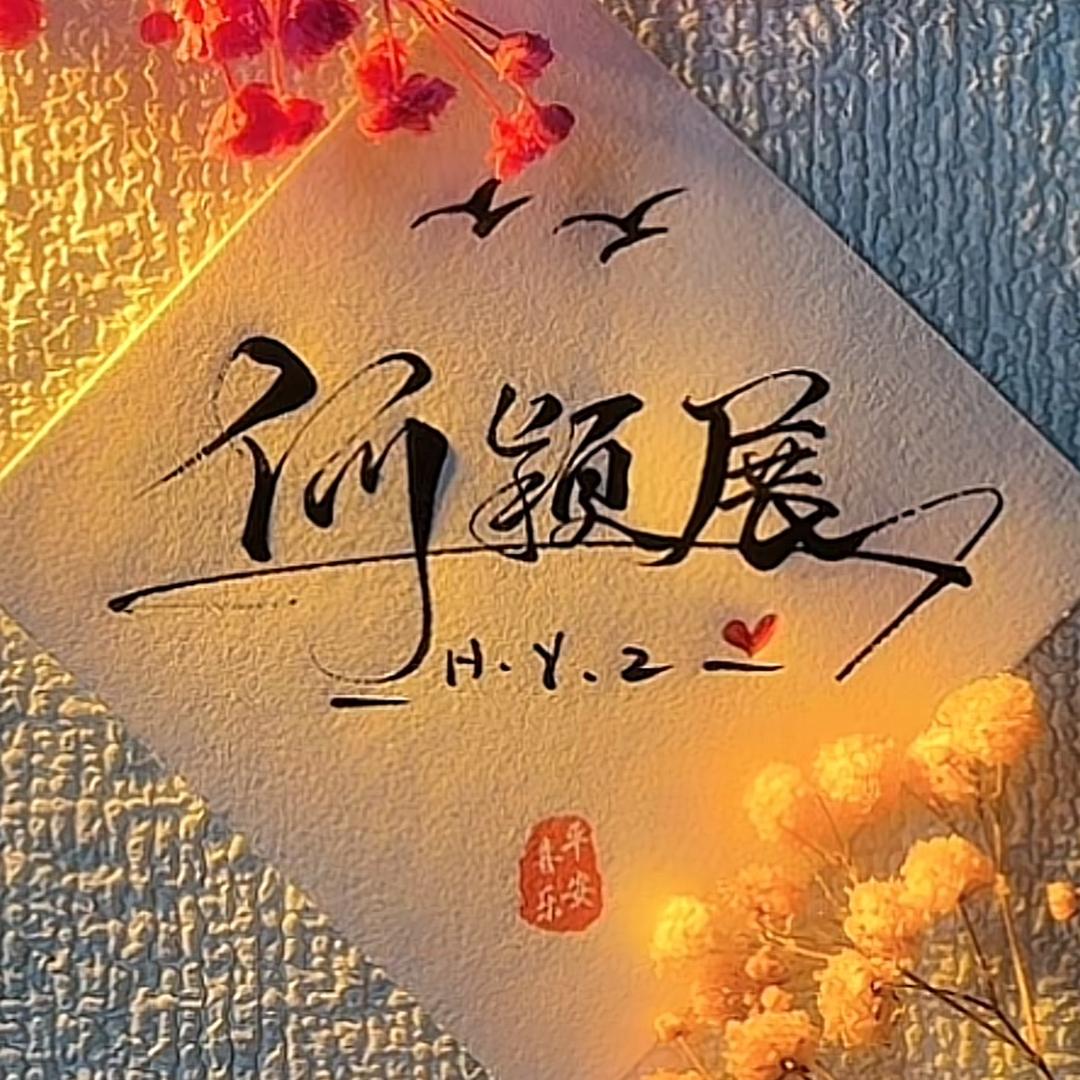 何颖展
H.Y.Z
平安
喜乐